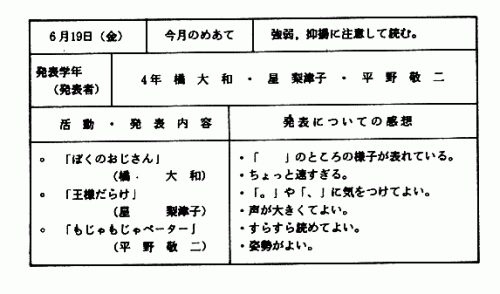 6月19日（金） 今月のめあて 強弱，抑揚に注意して読む。
発表学年
（発表者）
4年 橘 大 和 ・ 星 梨津子 ・ 平 野 敬 二
活 動 ・ 発 表 内 容 発表についての感想
○ 「ぼくのおじさん」
（橘． 大 和）
○ 「王様だらけ」
（星 梨津子）
○ 「もじゃもじゃペーター」
（平 野 敬 二）
・「 」のところの様子が表れている。
・ちょっと速すぎる。
・「。」や「、」に気をつけてよい。
・声が大きくてよい。
・すらすら読めてよい。
・姿勢がよい。